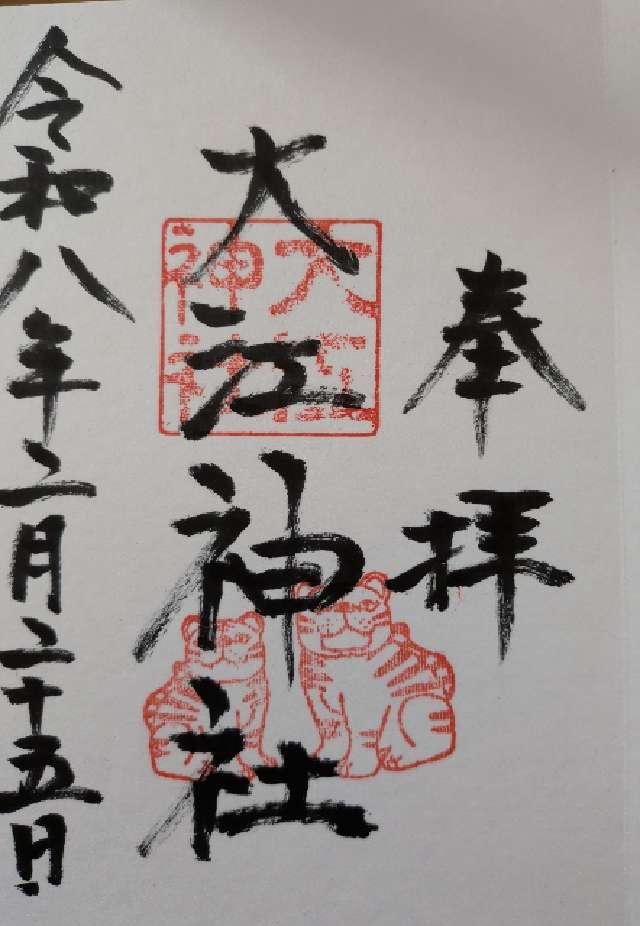 奉拝
大江神社
大江
神社
令和八年二月二十五日